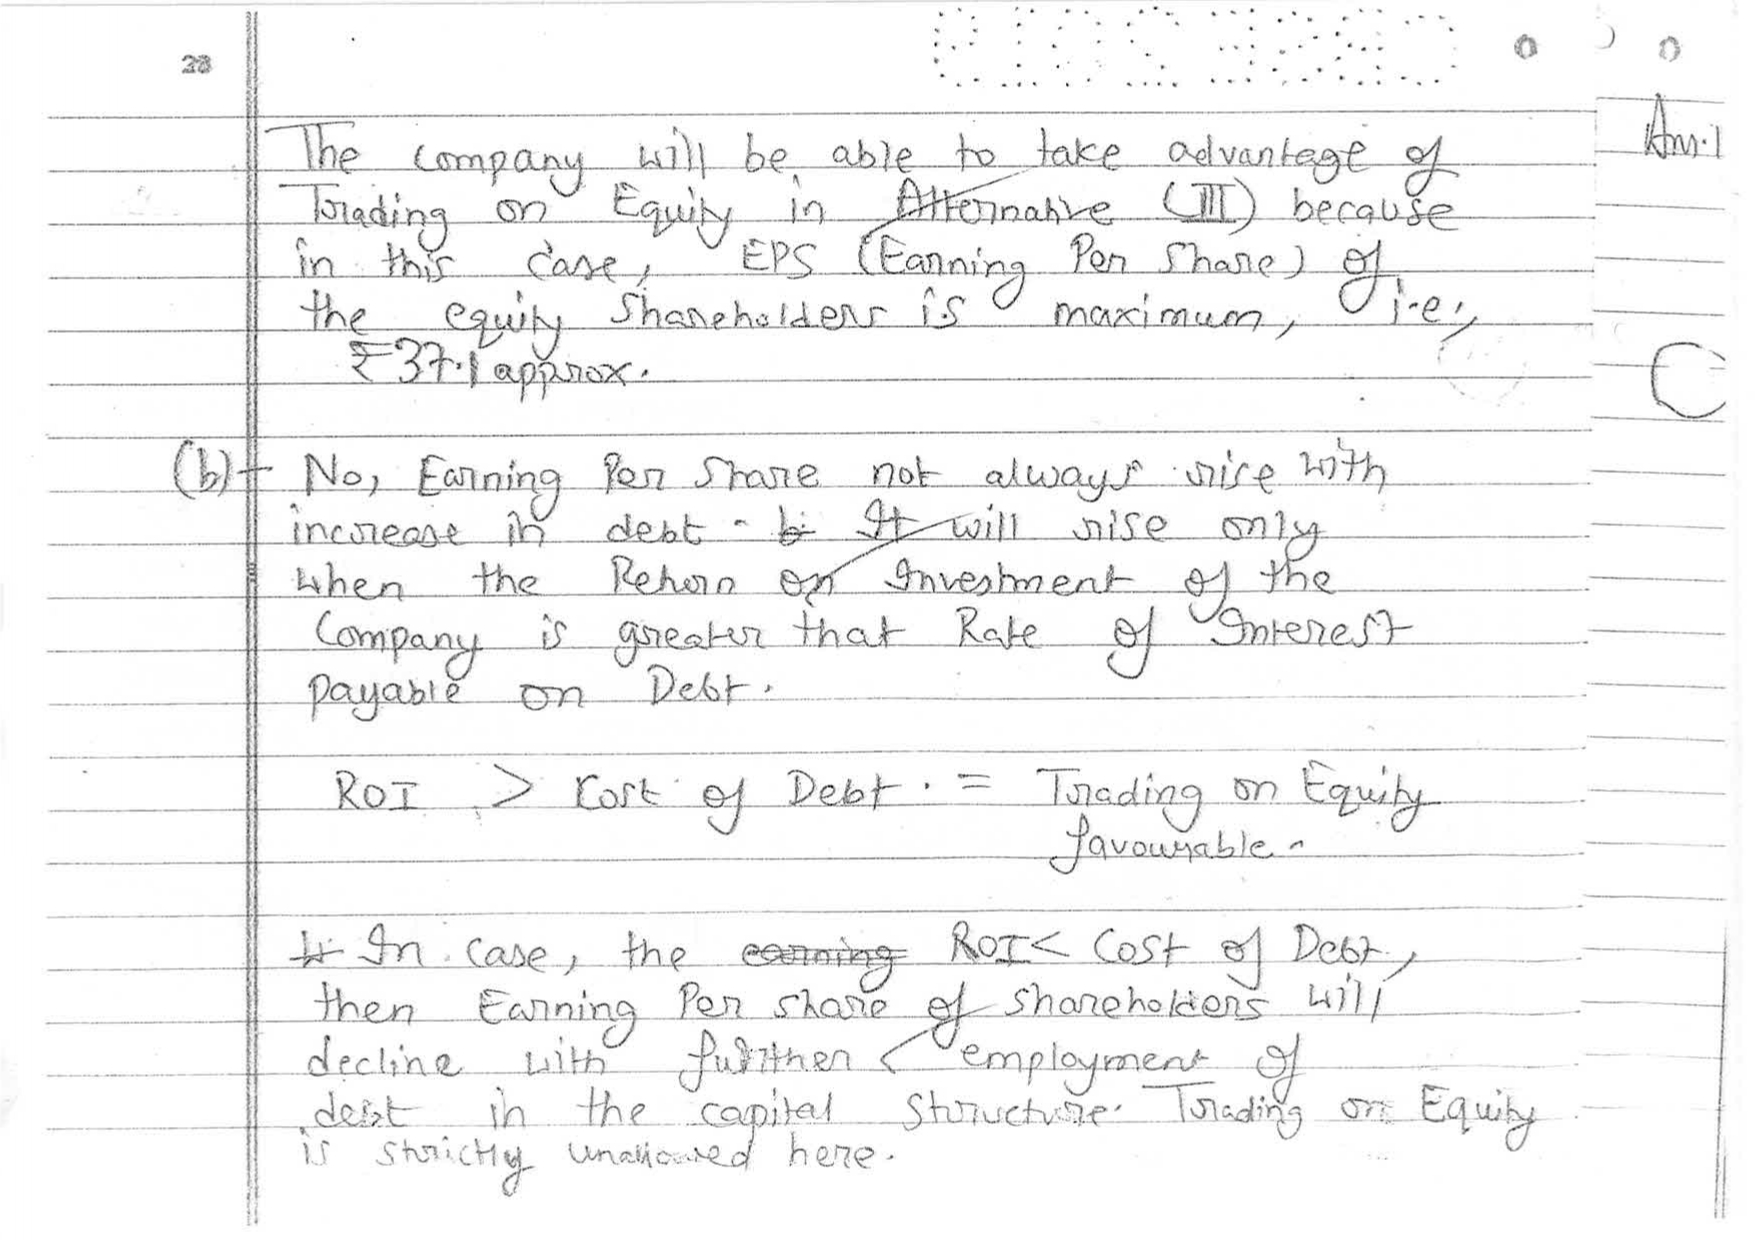 28
The company will be able to take advantage of
Trading on Equity in Alternative (III) because
in this case, EPS (Earning Per Share) of
the equity Shareholders is maximum, i.e.,
₹37.1 approx.
(b)- No, Earning Per Share not always rise with
increase in debt. It will rise only
when the Return on Investment of the
Company is greater that Rate of Interest
payable on Debt.
ROI > Cost of Debt. = Trading on Equity
favourable.
In case, the earning ROI < Cost of Debt,
then Earning Per share of shareholders will
decline with further employment of
debt in the capital Structure. Trading on Equity
is strictly unallowed here.